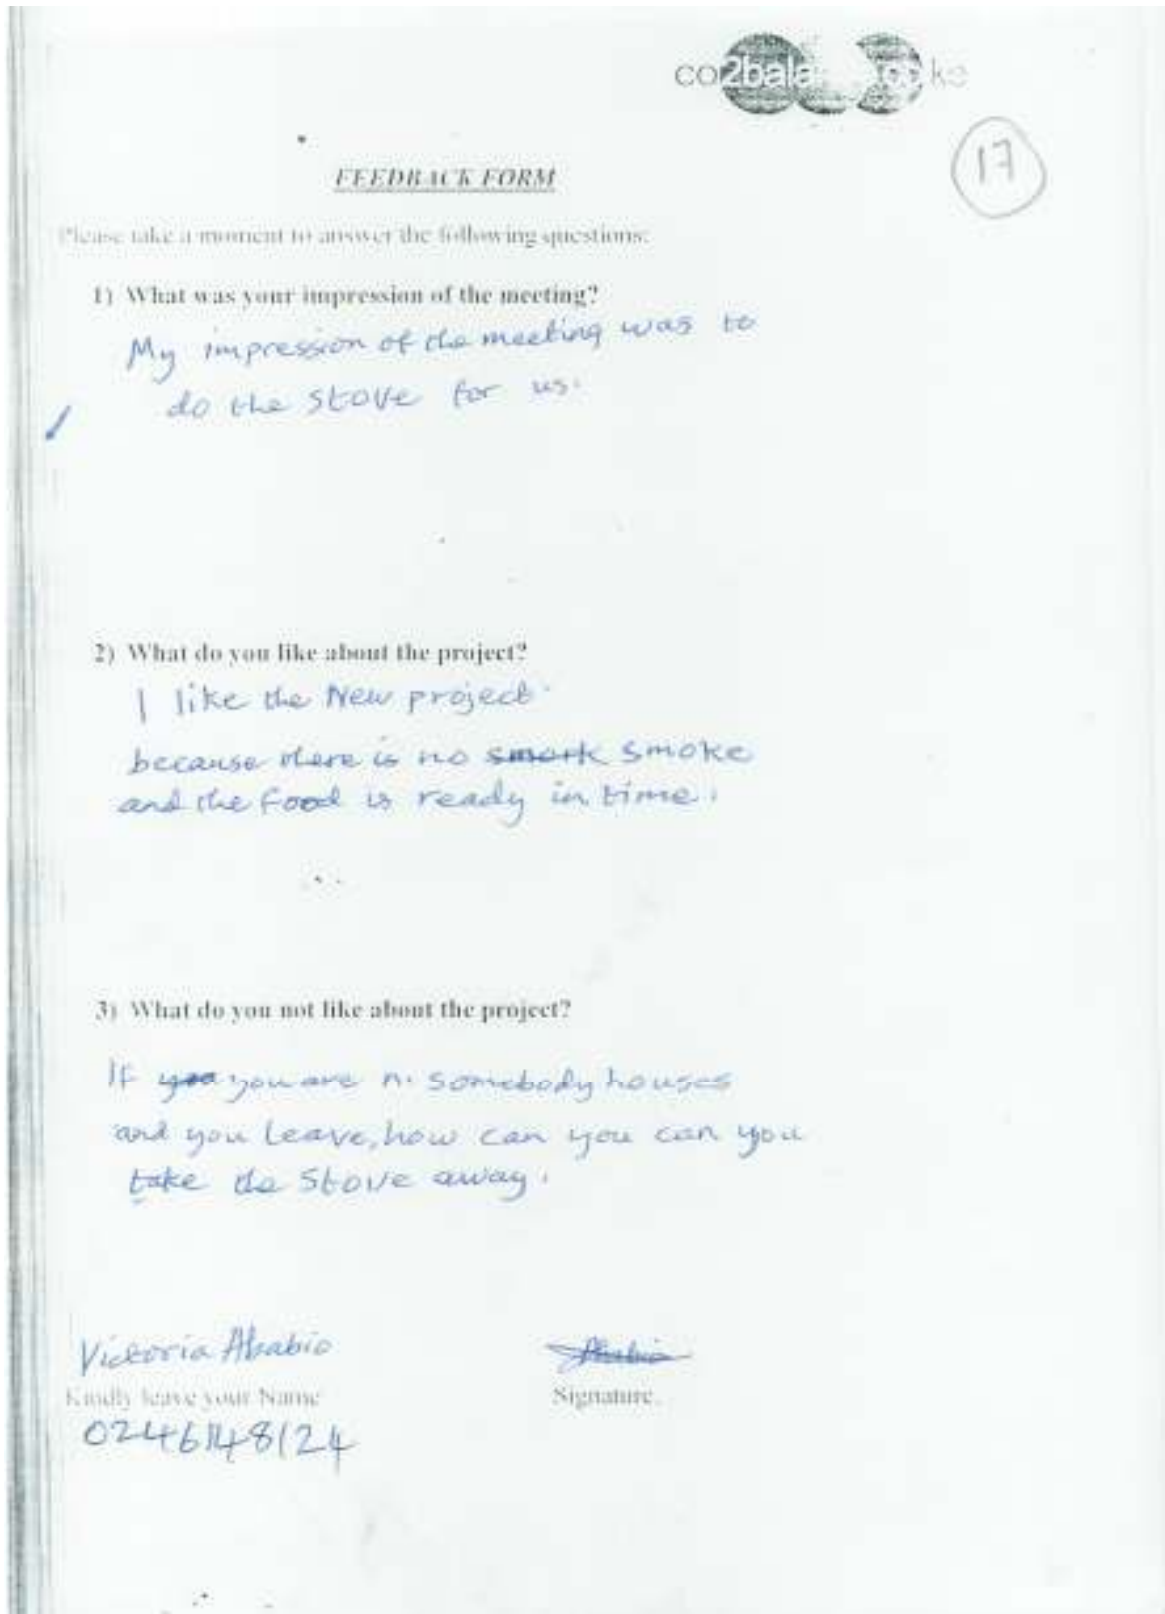 co2balance.co.ke
17
FEEDBACK FORM
Please take a moment to answer the following questions:
1) What was your impression of the meeting?
My impression of the meeting was to
do the stove for us.
2) What do you like about the project?
I like the New project.
because there is no smork smoke
and the food is ready in time.
3) What do you not like about the project?
If you you are n. somebody houses
and you leave, how can you can you
take the stove away.
Victoria Ababio
Kindly leave your Name
Signature.